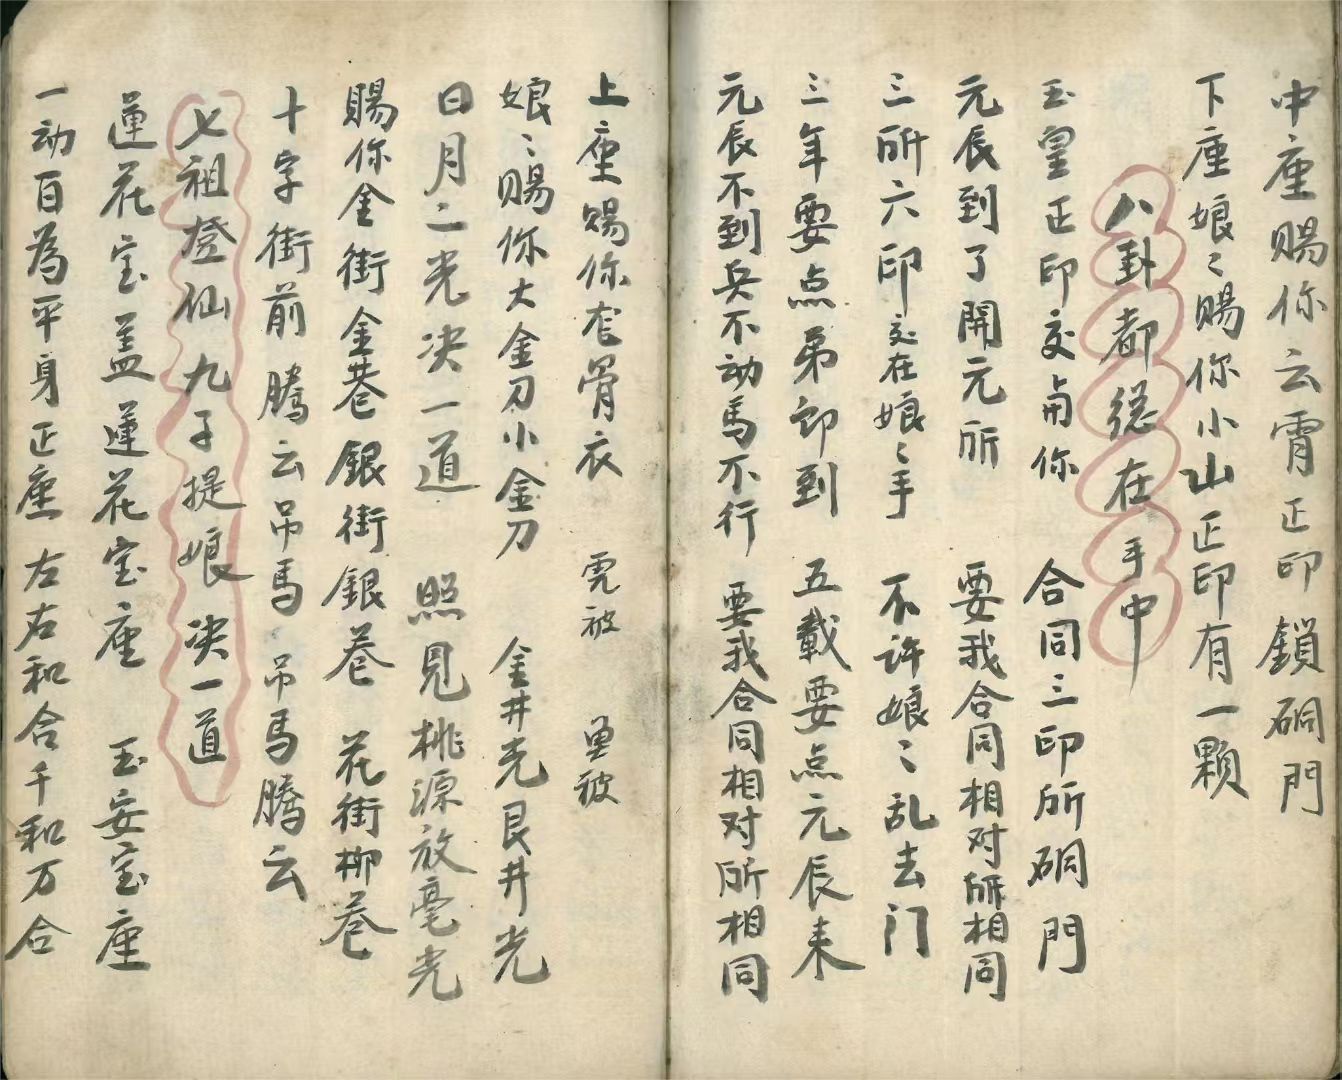 中座赐你云霄正印鎖硐門
下座娘〻赐你小山正印有一顆
八卦都総在手中
玉皇正印交与你 合同三印所硐門
元辰到了開元所 要我合同相对所相同
三所六印交在娘〻手 不許娘〻乱去门
三年要点弟郎到 五載要点元辰来
元辰不到兵不动馬不行 要我合同相对所相同
上座赐你 骨衣
娘〻赐你大金刀小金刀 金井光艮井光
日月二光决一道 照見桃源放毫光
赐你金街金巷銀街銀巷 花街柳巷
十字街前騰云吊馬吊馬騰云
七祖登仙九子提娘决一道
蓮花宝盖蓮花宝座 玉安宝座
一动百為平身正座 左右和合千和万合